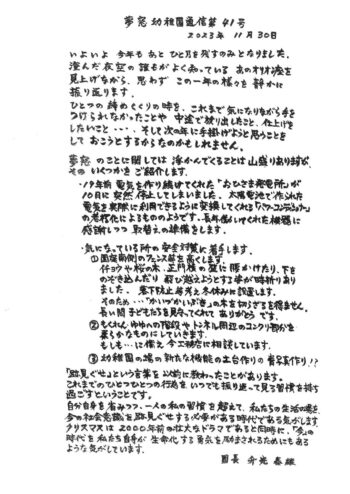 夢窓幼稚園通信第41号
2023年 11月30日
いよいよ 今年も あと ひと月を残すのみとなりました。
澄んだ夜空の 誰もがよく知っている あのオリオン座を
見上げながら、思わず この一年の様々を 静かに
振り返ります。
ひとつの 締めくくりの時を、これまで気になりながら手を
つけられなかったことや 中途で放り出したこと、仕上げを
したいこと・・・、そして次の年に手掛けようと思うことを
して おこうとするからなのかもしれません。
夢窓 のことに関しては 浮かんでくることは 山盛りあります
その いくつかを ご紹介します。
・19年前 電気を作り続けてくれた「おひさま発電所」が
10月に 突然 停止してしまいました。太陽電池で作られた
電気を実際に利用できるように変換してくれる「パワーコンディショナー」
の老朽化によるもののようです。長年働いてくれた機器に
感謝しつつ 取替えの準備をします。
・気になっている所の安全対策に着手します。
① 園庭南側のフェンスを高くします。
イチョウや桜の木、正門横の 壁に 腰かけたり、下を
のぞき込んだり、飛び越えようとする事が時折あり
ました。落下防止を考え 冬休みに設置します。
そのため・・・“かいづかいぶき”の木を切らざるを得ません。
長い間 子どもたちを見守ってくれて ありがとう です。
② もくれん ゆゆへの階段や トンネル周辺のコンクリ部分を
柔らかなものにしていきます。
もしも…に備え 今 工務店に相談しています。
③ 幼稚園の端の新たな機能の土台作りの 青写真作り!?
「顧見ぐせ」という言葉を 以前に教わったことがあります。
これまでのひとつひとつの行為を いつでも振り返って見る習慣を持ち
過ごすということです。
自分自身を省みつつ、一人の私の習慣を超えて、私たちの生活の場を
今の社会意識を 顧見ぐせる必要がある時代である気がします
クリスマスは 2000年前の壮大なドラマであると同時に、「今」の
時代を 私たち自身が 生命化する勇気を 励まされるためにもある
ような気がしています。
園長